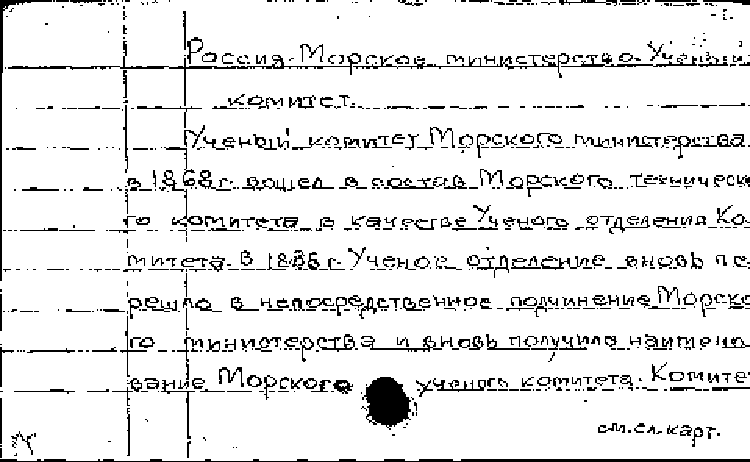 - 1 -
Россия. Морское министерство. Ученый
комитет.
Ученый комитет Морского министерства
в 1868 г. вошел в состав Морского техническо
го комитета в качестве Ученого отделения Ко-
митета. В 1886 г. Ученое отделение вновь пе
решло в непосредственное подчинение Морско
го министерства и вновь получило наимено
вание Морского ученого комитета. Комитет
см. сл. карт.